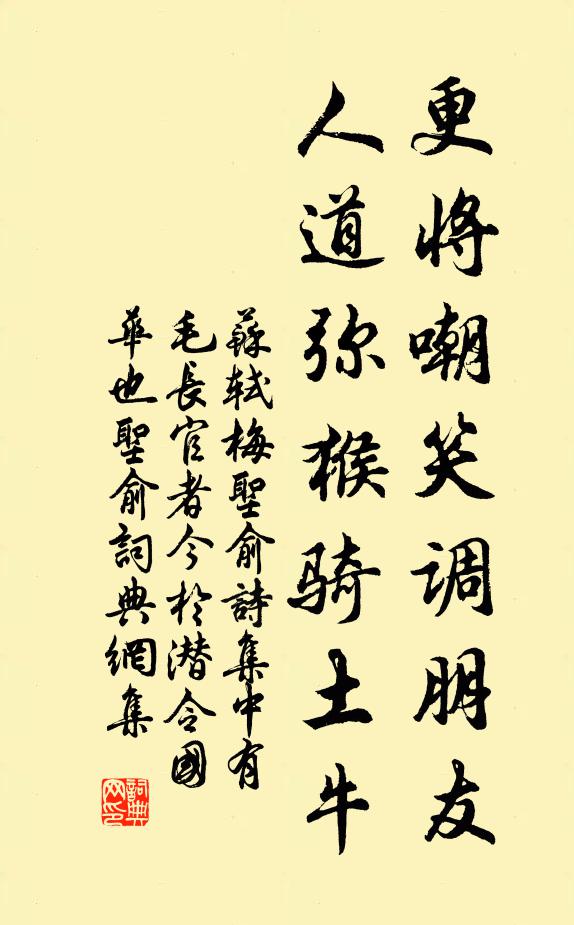 更将嘲笑调朋友
人道弥猴骑土牛
蘇軾梅聖俞詩集中有
毛長官者今於潛令國
華也聖俞詞典網集
詞典
网印